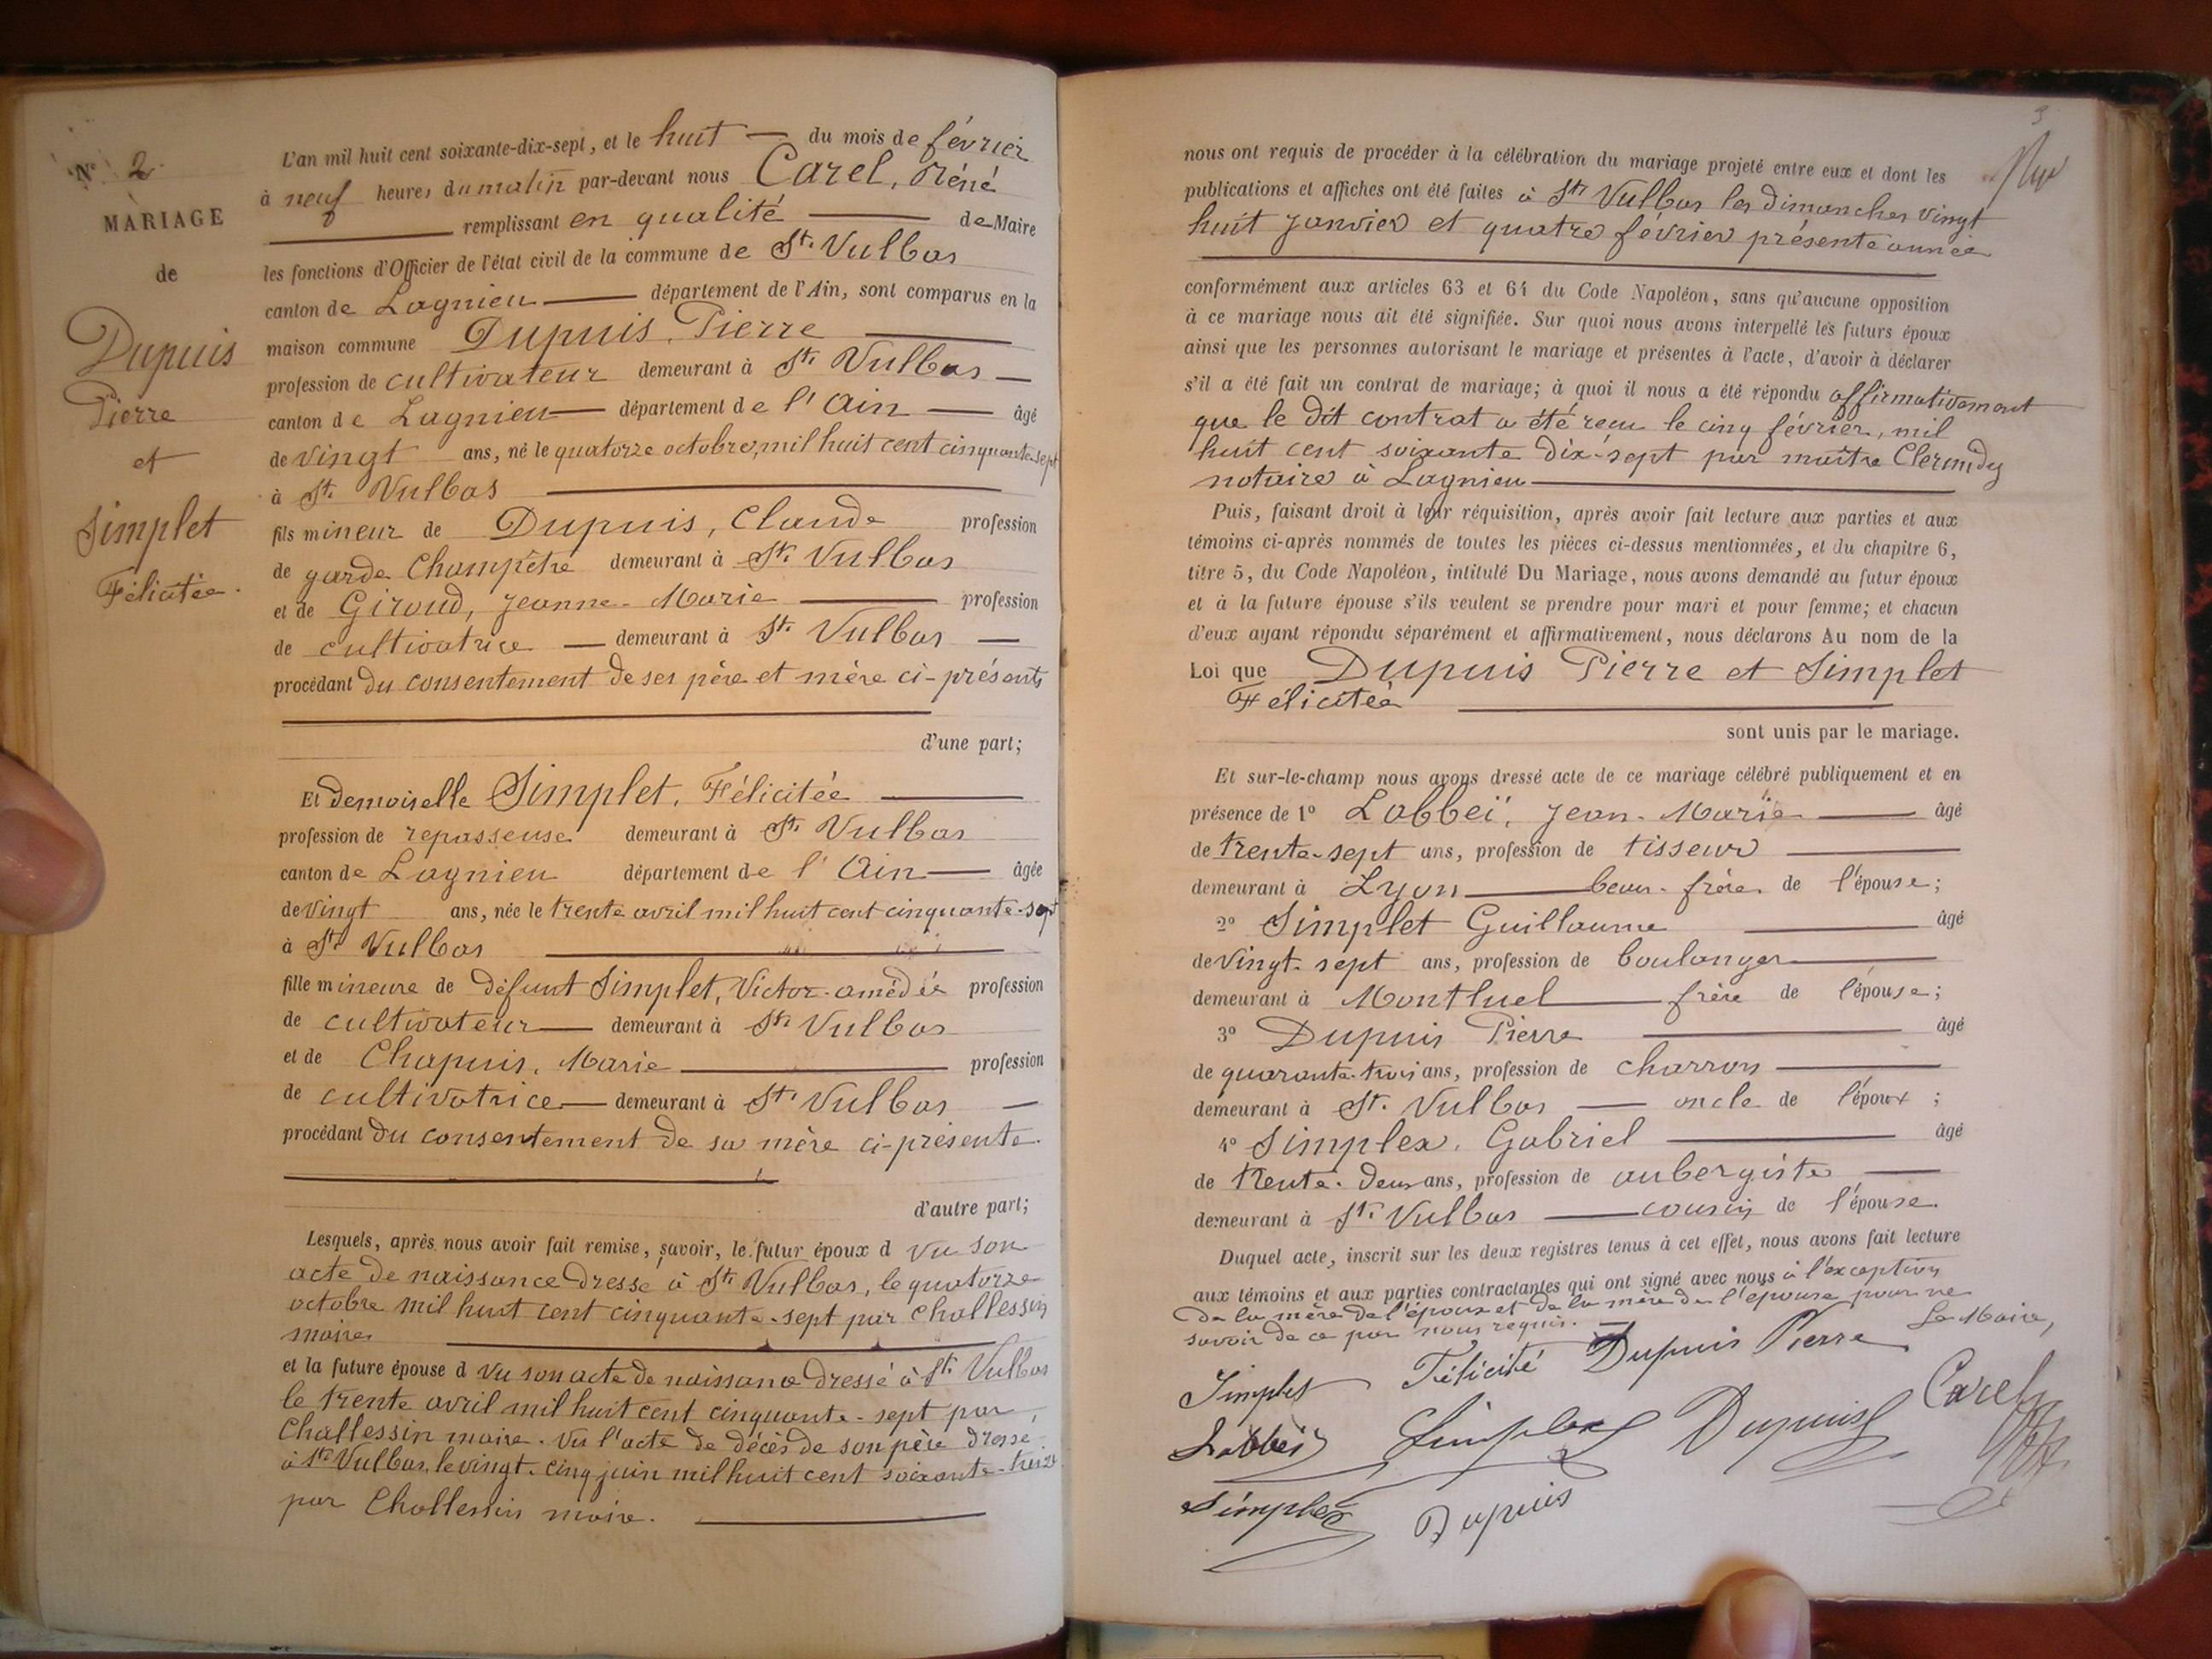 N° 2.
MARIAGE
de
Dupuis
Pierre
et
Simplet
Félicitée.
L'an mil huit cent soixante-dix-sept, et le huit — du mois de février
à neuf heures du matin par-devant nous Carel, Réné
remplissant en qualité — de Maire
les fonctions d'Officier de l'état civil de la commune de St. Vulbas
canton de Lagnieu — département de l'Ain, sont comparus en la
maison commune Dupuis, Pierre
profession de cultivateur demeurant à St. Vulbas —
canton de Lagnieu — département de l'Ain — âgé
de vingt ans, né le quatorze octobre, mil huit cent cinquante-sept
à St. Vulbas
fils mineur de Dupuis, Claude profession
de garde Champêtre demeurant à St. Vulbas
et de Giroud, Jeanne-Marie — profession
de cultivatrice — demeurant à St. Vulbas —
procédant du consentement de ses père et mère ci-présents
d'une part;
Et demoiselle Simplet, Félicitée
profession de repasseuse demeurant à St. Vulbas
canton de Lagnieu département de l'Ain — âgée
de vingt ans, née le trente avril mil huit cent cinquante-sept
à St. Vulbas
fille mineure de défunt Simplet, Victor-amédée profession
de cultivateur — demeurant à St. Vulbas
et de Chapuis, Marie — profession
de cultivatrice — demeurant à St. Vulbas —
procédant du consentement de sa mère ci-présente.
d'autre part;
Lesquels, après nous avoir fait remise, savoir, le futur époux d vu son
acte de naissance dressé à St. Vulbas, le quatorze
octobre mil huit cent cinquante-sept par Chollessin
maire
et la future épouse d vu son acte de naissance dressé à St. Vulbas
le trente avril mil huit cent cinquante-sept par
Chollessin maire. Vu l'acte de décès de son père dressé
à St. Vulbas, le vingt-cinq juin mil huit cent soixante-treize
par Chollessin maire.
3
nous ont requis de procéder à la célébration du mariage projeté entre eux et dont les
publications et affiches ont été faites à St. Vulbas les dimanches vingt
huit janvier et quatre février présente année
conformément aux articles 63 et 64 du Code Napoléon, sans qu'aucune opposition
à ce mariage nous ait été signifiée. Sur quoi nous avons interpellé les futurs époux
ainsi que les personnes autorisant le mariage et présentes à l'acte, d'avoir à déclarer
s'il a été fait un contrat de mariage; à quoi il nous a été répondu affirmativement
que le dit contrat a été reçu le cinq février, mil
huit cent soixante dix-sept par maître
notaire à Lagnieu
Puis, faisant droit à leur réquisition, après avoir fait lecture aux parties et aux
témoins ci-après nommés de toutes les pièces ci-dessus mentionnées, et du chapitre 6,
titre 5, du Code Napoléon, intitulé Du Mariage, nous avons demandé au futur époux
et à la future épouse s'ils veulent se prendre pour mari et pour femme; et chacun
d'eux ayant répondu séparément et affirmativement, nous déclarons Au nom de la
Loi que Dupuis Pierre et Simplet
Félicitée
sont unis par le mariage.
Et sur-le-champ nous avons dressé acte de ce mariage célébré publiquement et en
présence de 1° Labbeï, Jean-Marie — âgé
de trente-sept ans, profession de tisseur
demeurant à Lyon — beau-frère de l'épouse;
2° Simplet Guillaume — âgé
de vingt-sept ans, profession de boulanger
demeurant à Montluel — frère de l'épouse;
3° Dupuis Pierre — âgé
de quarante-trois ans, profession de charron
demeurant à St. Vulbas — oncle de l'époux;
4° Simplex, Gabriel — âgé
de trente-deux ans, profession de aubergiste
demeurant à St. Vulbas — cousin de l'épouse.
Duquel acte, inscrit sur les deux registres tenus à cet effet, nous avons fait lecture
aux témoins et aux parties contractantes qui ont signé avec nous à l'exception
de la mère de l'époux et de la mère de l'épouse pour ne
savoir de ce par nous requis. — Le Maire,
Simplet Félicité Dupuis Pierre
Labbeï Simplex Dupuis Carel
Simplet Dupuis